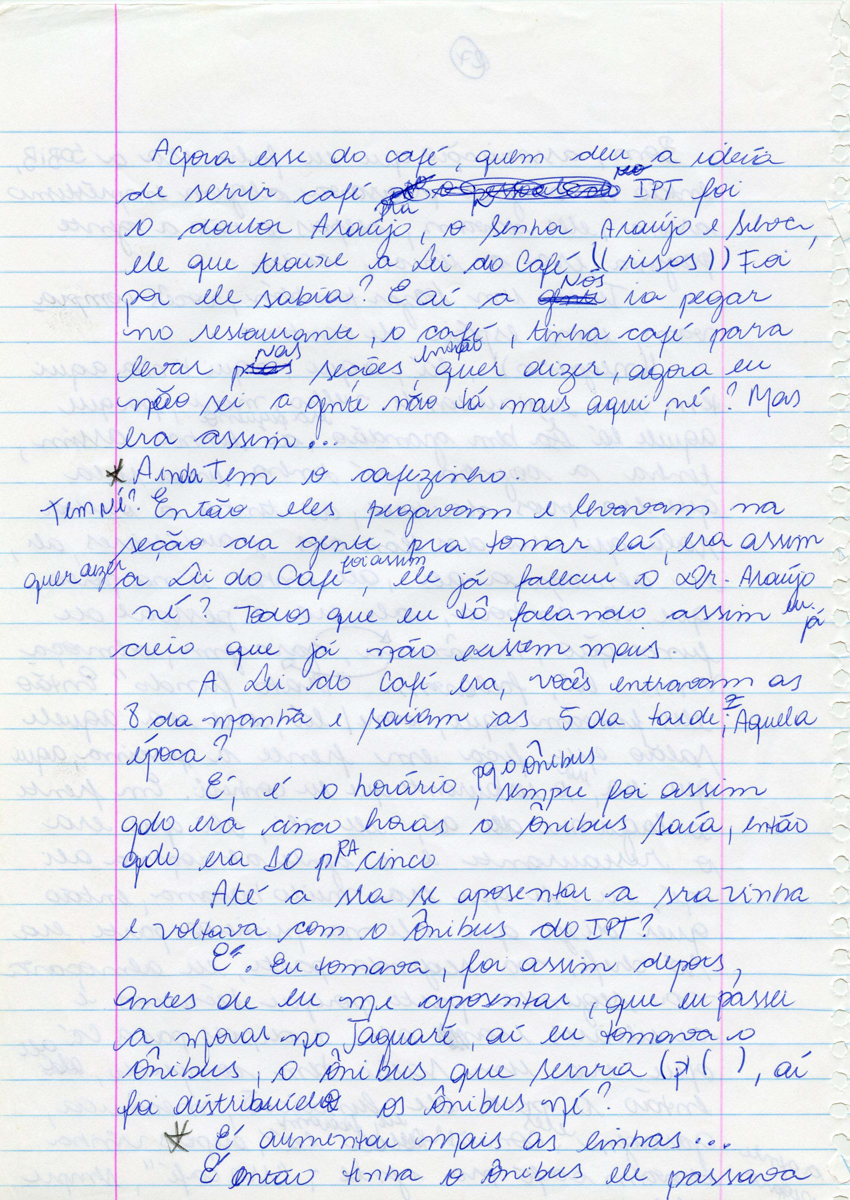 Agora esse do café, quem deu a ideia
de servir café pra no IPT foi
o doutor Araújo, o senhor Araújo e Silva,
ele que trouxe a Lei do Café ((risos)) Foi
por ele sabia? E aí a Nós ia pegar
no restaurante, o café, tinha café para
levar nas seções, então quer dizer, agora eu
não sei a gente não tá mais aqui, né? Mas
era assim...
* Ainda tem o cafezinho.
Tem né? Então eles pegavam e levavam na
seção da gente pra tomar lá, era assim
quer dizer a Lei do Café foi assim, ele já faleceu o Dr. Araújo
né? Todos que eu tô falando assim eu já
creio que já não existem mais.
A Lei do Café era, vocês entravam as
8 da manhã e saiam as 5 da tarde, Aquela
época?
É, é o horário, pq o ônibus sempre foi assim
qdo era cinco horas o ônibus saía, então
qdo era 10 pRA cinco
Até a sra se aposentar a sra vinha
e voltava com o ônibus do IPT?
É. Eu tomava, foi assim depois,
antes de eu me aposentar, que eu passei
a morar no Jaguaré, aí eu tomava o
ônibus, o ônibus que servia ( ), aí
foi distribuído os ônibus né?
* É aumentou mais as linhas...
É então tinha o ônibus ele passava